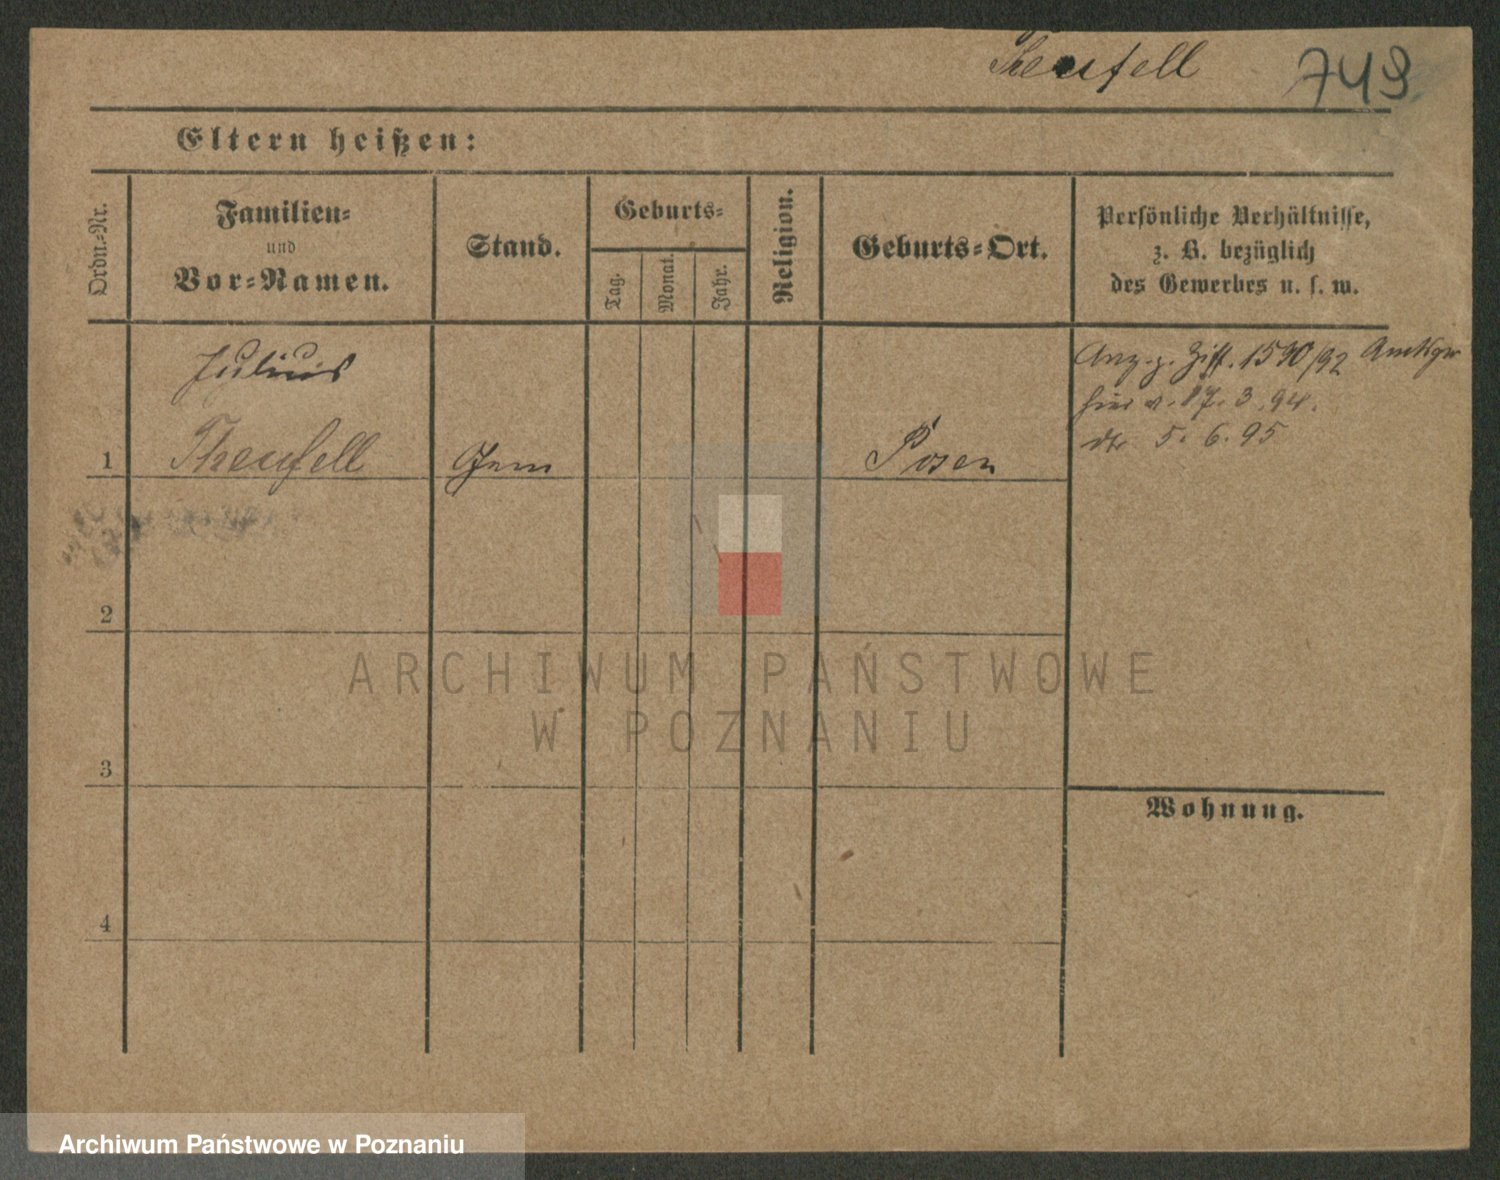 Theufell 743
Eltern heißen:
Ordn.-Nr.
Familien-
und
Vor-Namen.
Stand.
Geburts-
Tag.
Monat.
Jahr.
Religion.
Geburts-Ort.
Persönliche Verhältnisse,
z. B. bezüglich
des Gewerbes u. s. w.
Julius
1 Theufell Posen
Anz. z. Ziff. 1530/92
hier v. 17. 3. 94.
5. 6. 95
2
3
4
Wohnung.
ARCHIWUM PAŃSTWOWE
W POZNANIU
Archiwum Państwowe w Poznaniu